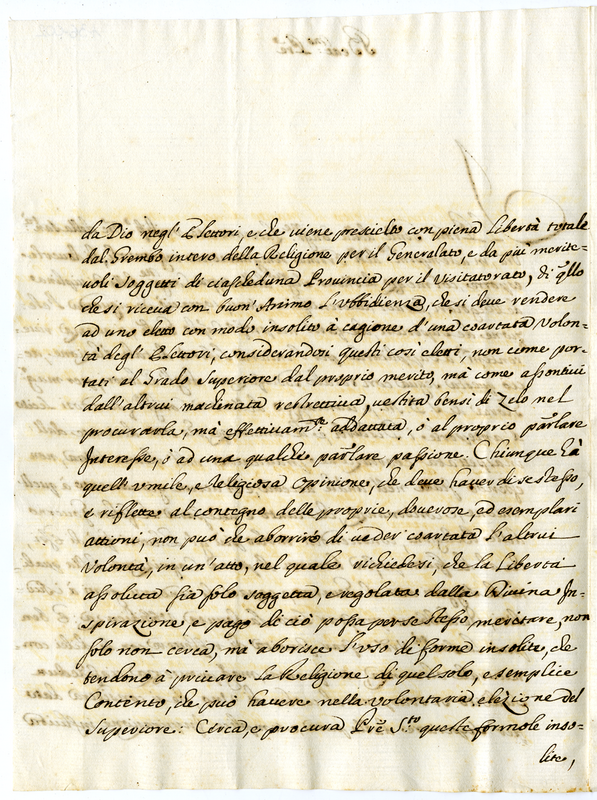 da Dio negl' Elettori, e che viene prescielto con piena Libertà totale
dal Grembo intero della Religione per il Generalato, e da più merite-
voli Soggetti di ciascheduna Provincia per il Visitatorato, di q̃llo
che si riceva con buon' Animo l'Ubbidienza, che si deve rendere
ad uno eletto con modo insolito à cagione d'una coartata Volon-
tà degl' Elettori, considerandosi questi così eletti, non come por-
tati al Grado Superiore dal proprio merito, mà come assontivi
dall'altrui machinata restrettiva, vestita bensì di Zelo nel
procurarla, mà effettivam.te addattata, ò al proprio par̃lare
Interesse, ò ad una qualche par̃lare passione. Chiunque hà
quell' umile, e Religiosa Opinione, che deve haver di se stesso,
e riflette al contegno delle proprie, doverose, ed esemplari
attioni, non può che aborrire di veder coartata l'altrui
Volontà, in un'atto, nel quale richiedesi, che la Libertà
assoluta sia solo soggetta, e regolata dalla Divina In-
spirazione, e pago di ciò possa per se stesso meritare, non
solo non cerca, mà aborisce l'uso di forme insolite, che
tendono à privare la Religione di quel solo, e semplice
Contento, che può havere nella volontaria elezione del
Superiore: Cerca, e procura Pr̃e S.to queste formole inso-
lite,